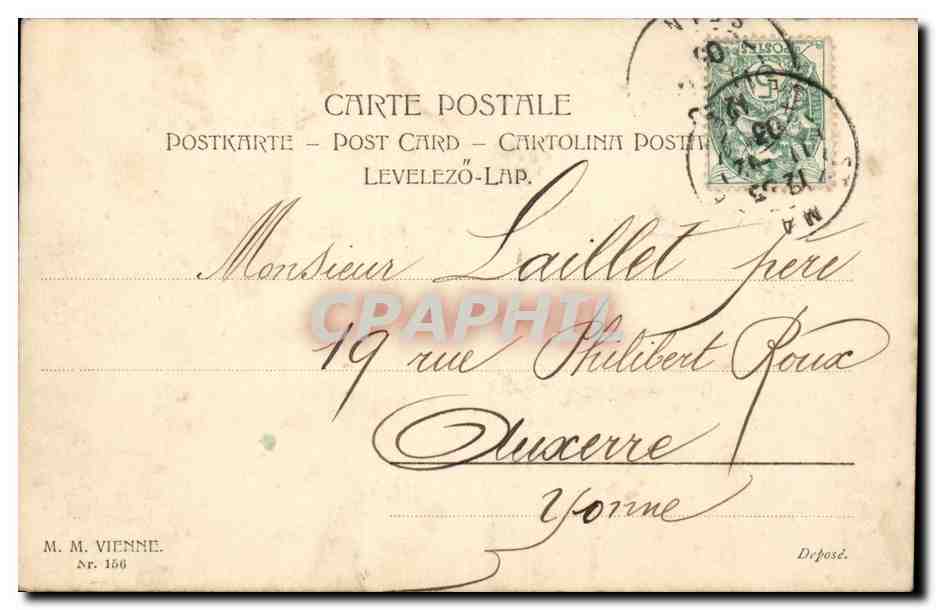 CARTE POSTALE
POSTKARTE – POST CARD – CARTOLINA POSTA
LEVELEZŐ-LAP.
POSTES
Monsieur Laillet père
CPAPHIL
19 rue Philibert Roux
Auxerre
Yonne
M. M. VIENNE.
Nr. 156
Deposé.